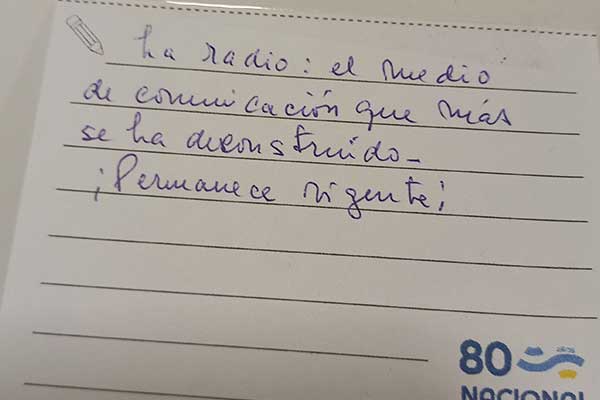 La radio: el medio
de comunicación que más
se ha deconstruido_
¡Permanece vigente!
80 años
NACIONAL